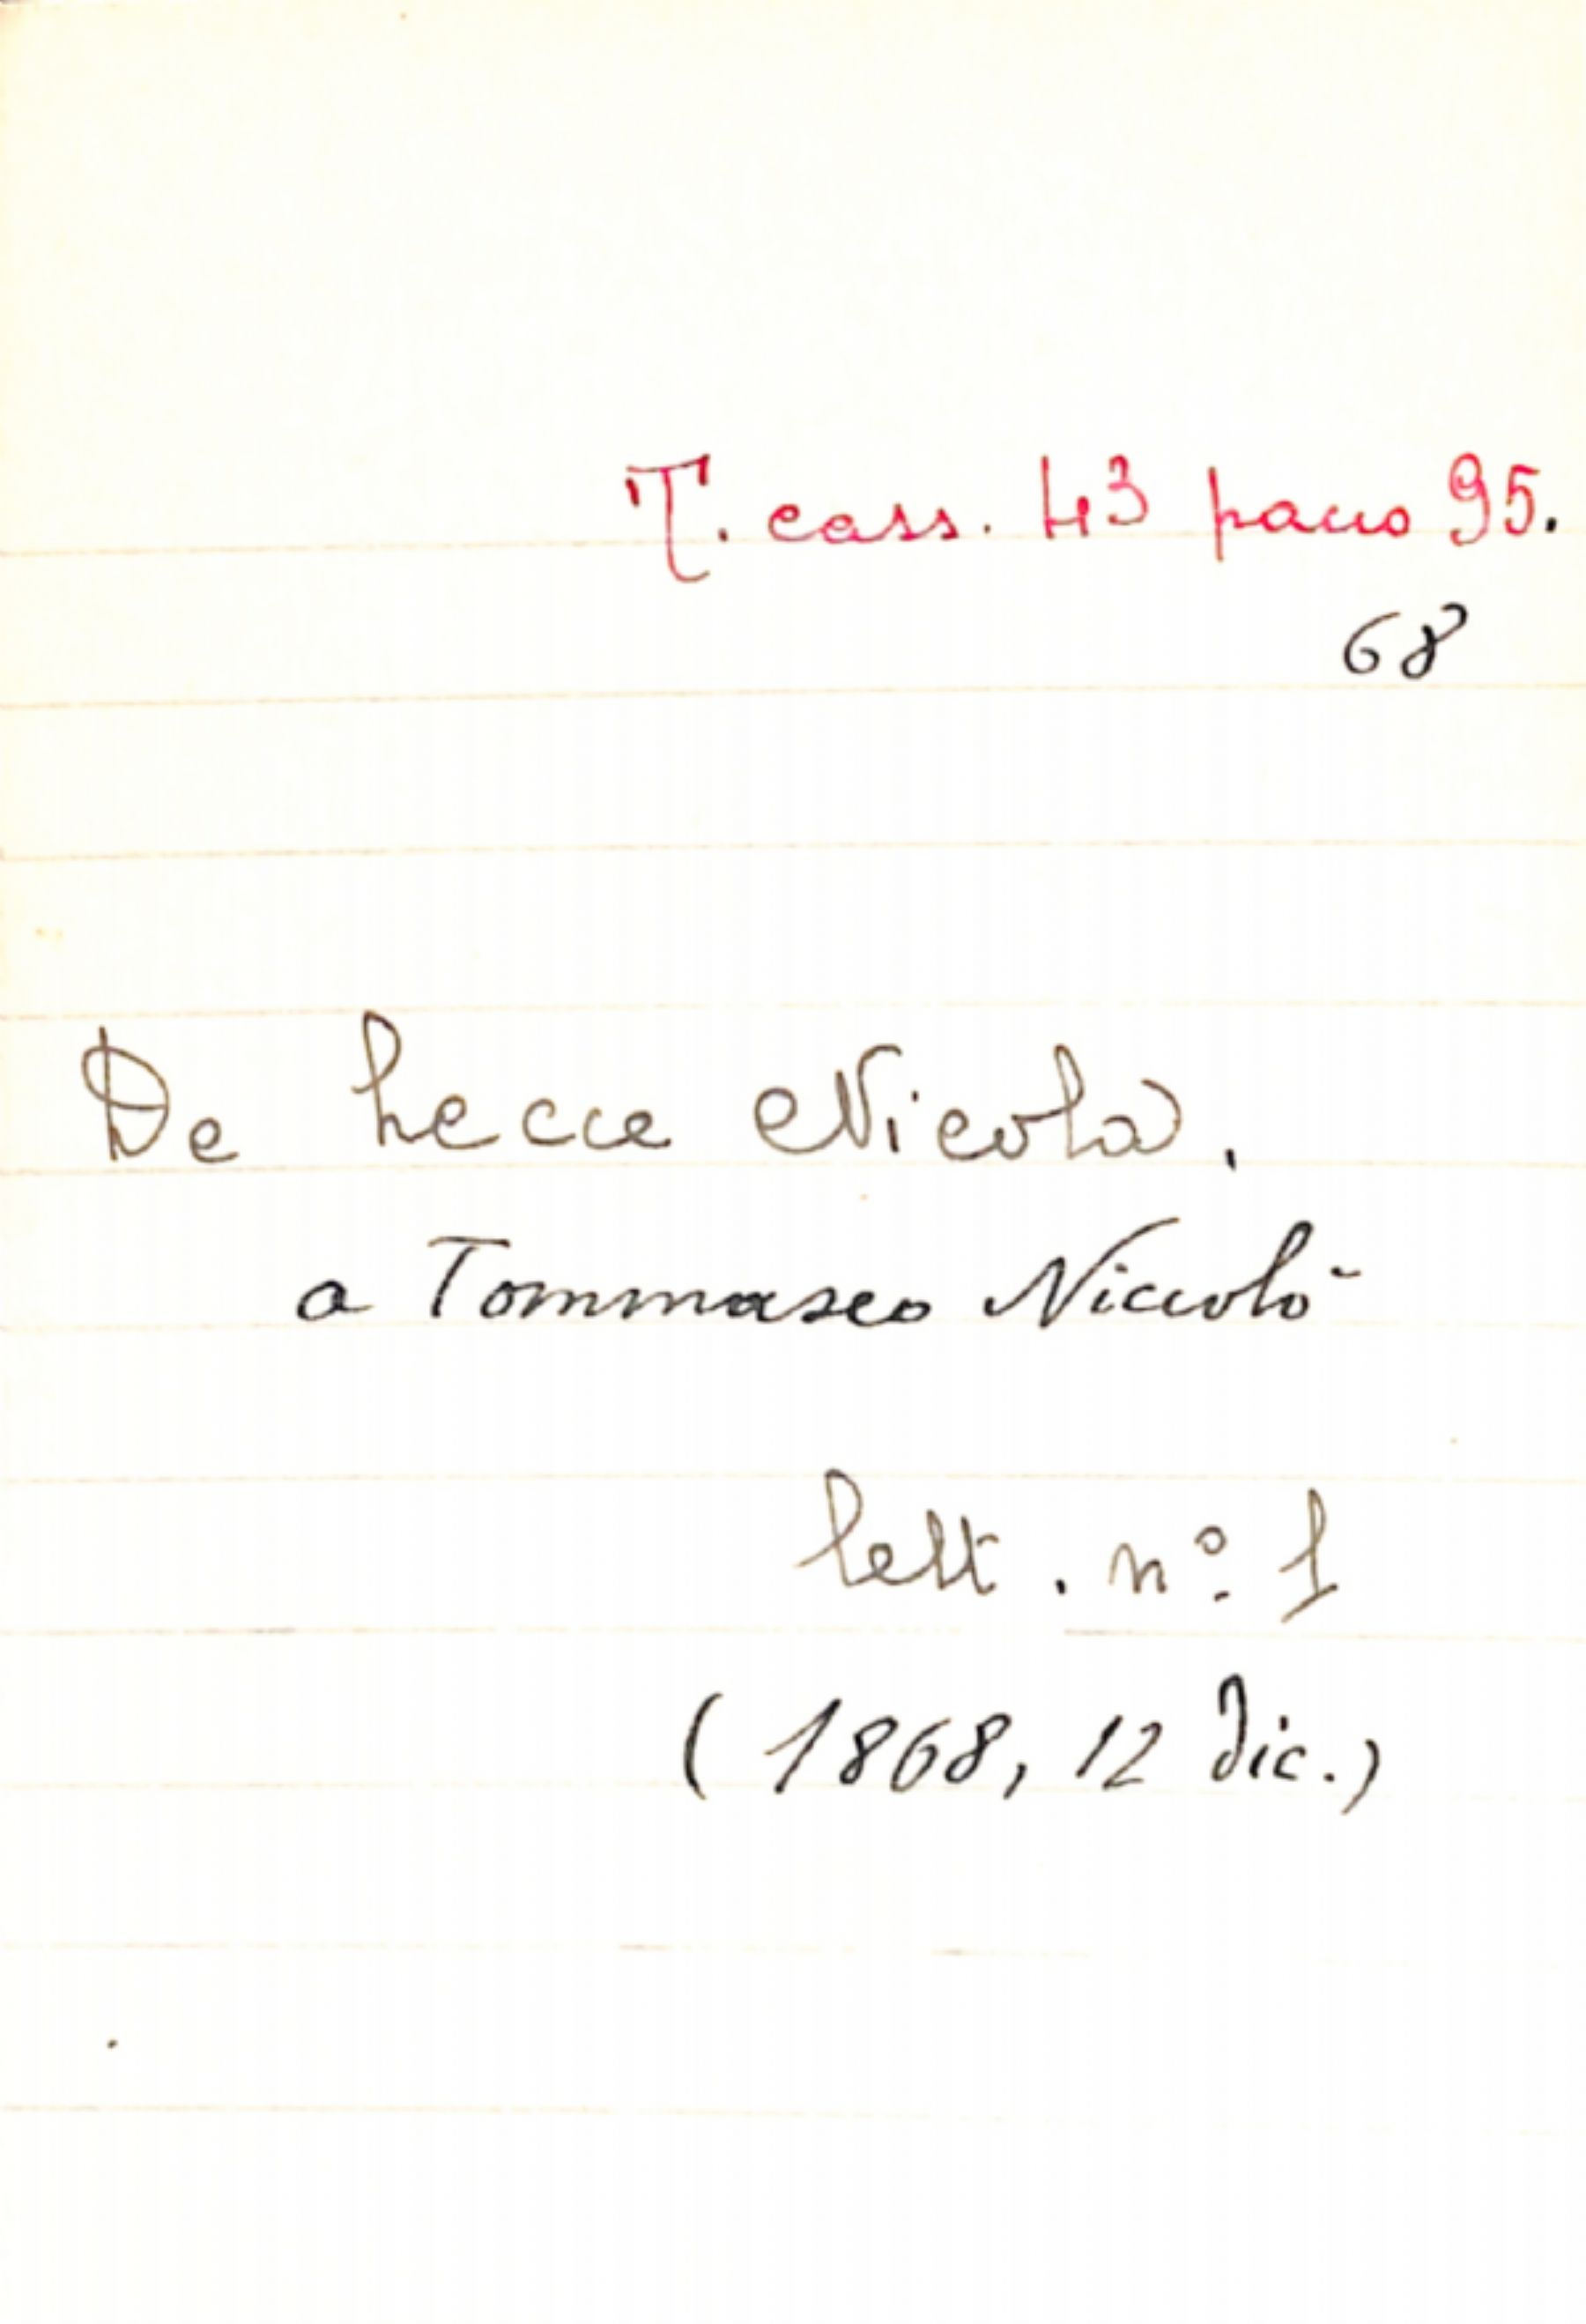 T. cass. 43 pacco 95.
68
De Lecce Nicola.
a Tommaseo Niccolò
lett. nº 1
(1868, 12 dic.)